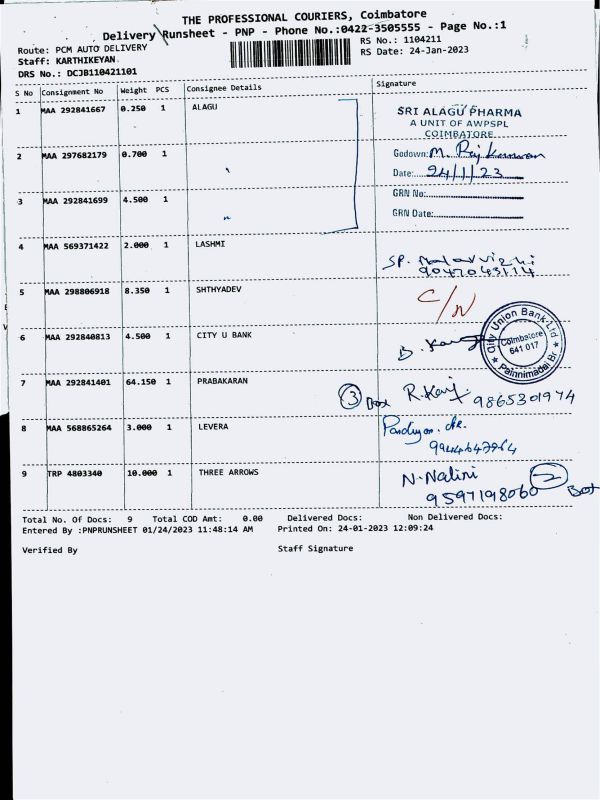 THE PROFESSIONAL COURIERS, Coimbatore
Delivery Runsheet - PNP - Phone No.:0422-3505555 - Page No.:1
Route: PCM AUTO DELIVERY
RS No.: 1104211
Staff: KARTHIKEYAN
RS Date: 24-Jan-2023
DRS No.: DCJB110421101
S No Consignment No Weight PCS Consignee Details Signature
1 MAA 292841667 0.250 1 ALAGU
SRI ALAGU PHARMA
A UNIT OF AWPSPL
COIMBATORE
2 MAA 297682179 0.700 1
Godown: M. Raj
Date: 24/1/23
3 MAA 292841699 4.500 1
GRN No:
GRN Date:
4 MAA 569371422 2.000 1 LASHMI
SP.
5 MAA 298806918 8.350 1 SHTHYADEV
C/N
6 MAA 292840813 4.500 1 CITY U BANK
B.
City Union Bank Ltd
Coimbatore
641 017
7 MAA 292841401 64.150 1 PRABAKARAN
3 Box R. 9865301974
8 MAA 568865264 3.000 1 LEVERA
9944647964
9 TRP 4803340 10.000 1 THREE ARROWS
N. Nalini 2 Box
9597198060
Total No. Of Docs: 9 Total COD Amt: 0.00 Delivered Docs: Non Delivered Docs:
Entered By :PNPRUNSHEET 01/24/2023 11:48:14 AM Printed On: 24-01-2023 12:09:24
Verified By Staff Signature